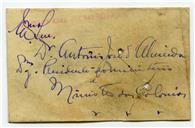 Exmo
Sr.
Dr. António José d'Almeida
Dig. Presidente do ministério
e
Ministro das Colonias